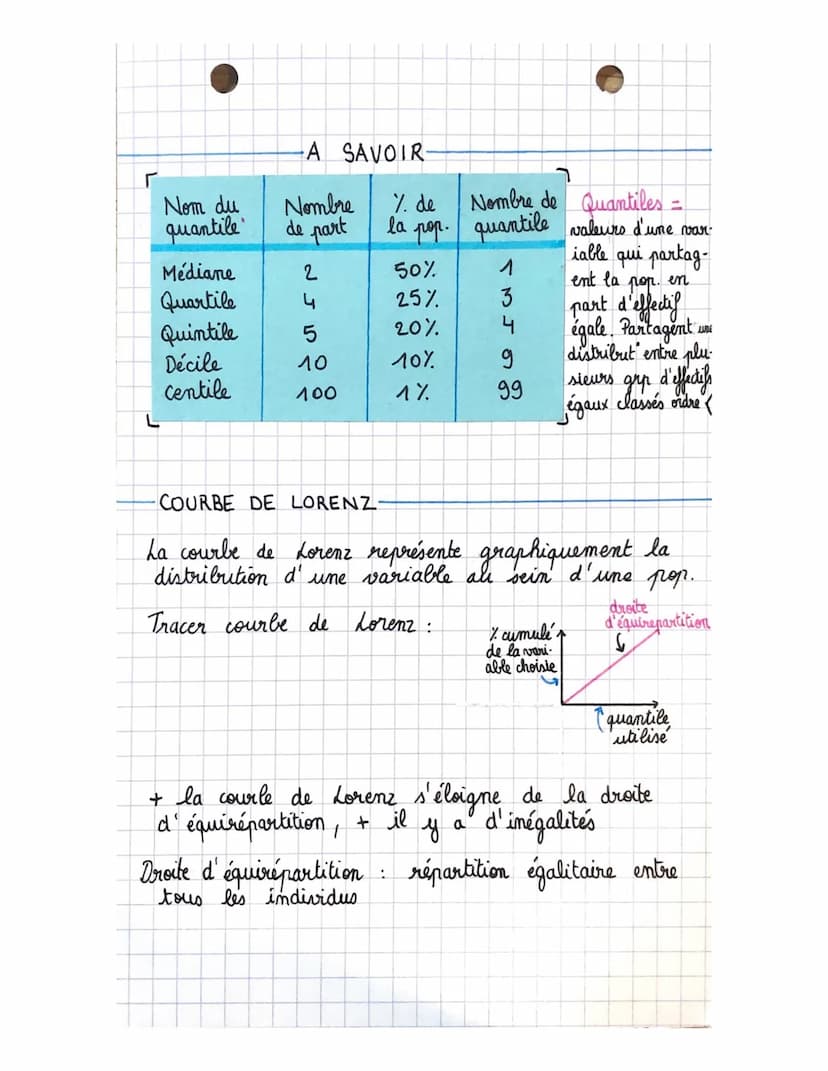 A SAVOIR
Nom du quantile Nombre de part % de la pop. Nombre de quantile
Médiane 2 50% 1
Quartile 4 25% 3
Quintile 5 20% 4
Décile 10 10% 9
Centile 100 1% 99
Quantiles =
valeurs d'une var-
iable qui partag-
ent la pop. en
part d'effectif
égale. Partagent une
distribut° entre plu-
sieurs grp d'effectifs
égaux classés ordre <
COURBE DE LORENZ
La courbe de Lorenz représente graphiquement la
distribution d'une variable au sein d'une pop.
Tracer courbe de Lorenz :
% cumulé
de la vari-
able choisie
droite
d'équirepartition
quantile
utilisé
+ la courbe de Lorenz s'éloigne de la droite
d'équirépartition, + il y a d'inégalités
Droite d'équirépartition : répartition égalitaire entre
tous les individus